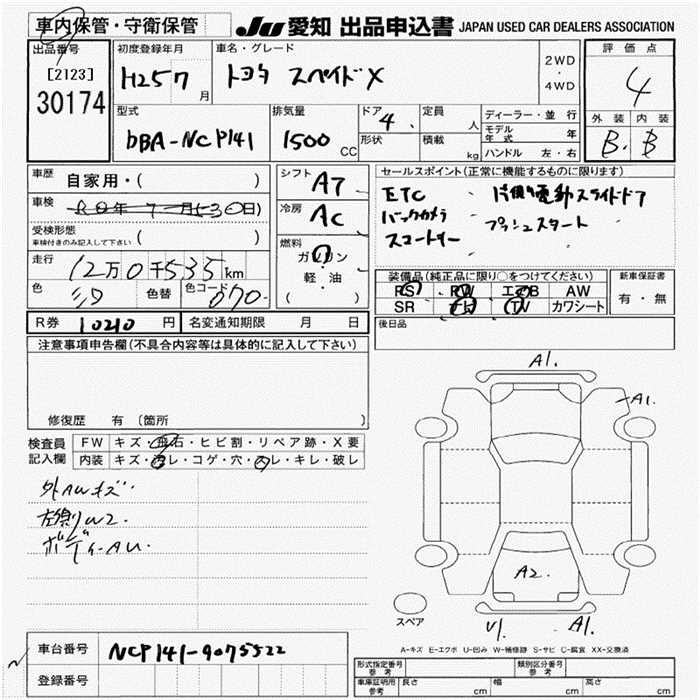 車内保管・守衛保管
JU 愛知 出品申込書 JAPAN USED CAR DEALERS ASSOCIATION
出品番号
[2123]
30174
初度登録年月
H25 7 月
車名・グレード
トヨタ スペイド X
2WD
4WD
評価点
4
外装 内装
B B
型式
DBA-NCP141
排気量
1500 CC
ドア 4
形状
定員 人
積載 kg
ディーラー・並行
モデル年式 年
ハンドル 左・右
車歴
自家用・( )
車検
受検形態
車検付きのみ記入して下さい ( )
走行
12万0千535km
色
シロ
色替
色コード 070
シフト AT
冷房 AC
燃料
ガソリン
軽・油
( )
セールスポイント(正常に機能するものに限ります)
ETC 片側電動スライドドア
バックカメラ プッシュスタート
スマートキー
装備品(純正品に限り○をつけてください)
PS PW エアB AW
SR ナビ TV カワシート
新車保証書
有・無
後日品
R券 10210 円
名変通知期限 月 日
注意事項申告欄(不具合内容等は具体的に記入して下さい)
修復歴 有 (箇所 )
検査員
記入欄
FW キズ・飛石・ヒビ割・リペア跡・X要
内装 キズ・汚レ・コゲ・穴・スレ・キレ・破レ
外AWキズ
左側W2.
ボディ-AU.
A1.
A1.
A2.
U1
A1.
スペア
A-キズ E-エクボ U-凹み W-補修跡 S-サビ C-腐食 XX-交換済
車台番号
NCP141-9075522
登録番号
形式指定番号
参考
類別区分番号
参考
車庫証明用
参考
長さ cm
幅 cm
高さ cm